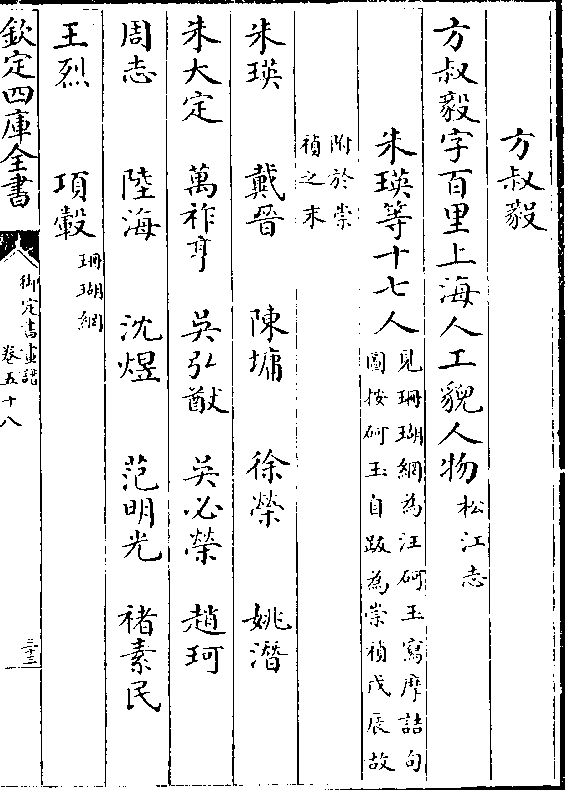 方叔毅
方叔毅字百里上海人工貌人物松江志
朱瑛等十七人見珊瑚網為汪砢玉寫摩詰句
圖按砢玉自跋為崇禎戊辰故
附於崇
禎之末
朱瑛 戴晉 陳墉 徐榮 姚潛
朱大定 萬祚亨 吳弘猷 吳必榮 趙珂
周志 陸海 沈煜 范明光 褚素民
王烈 項𣫭珊瑚網
欽定四庫全書 御定書畫譜 卷五十八 三十三